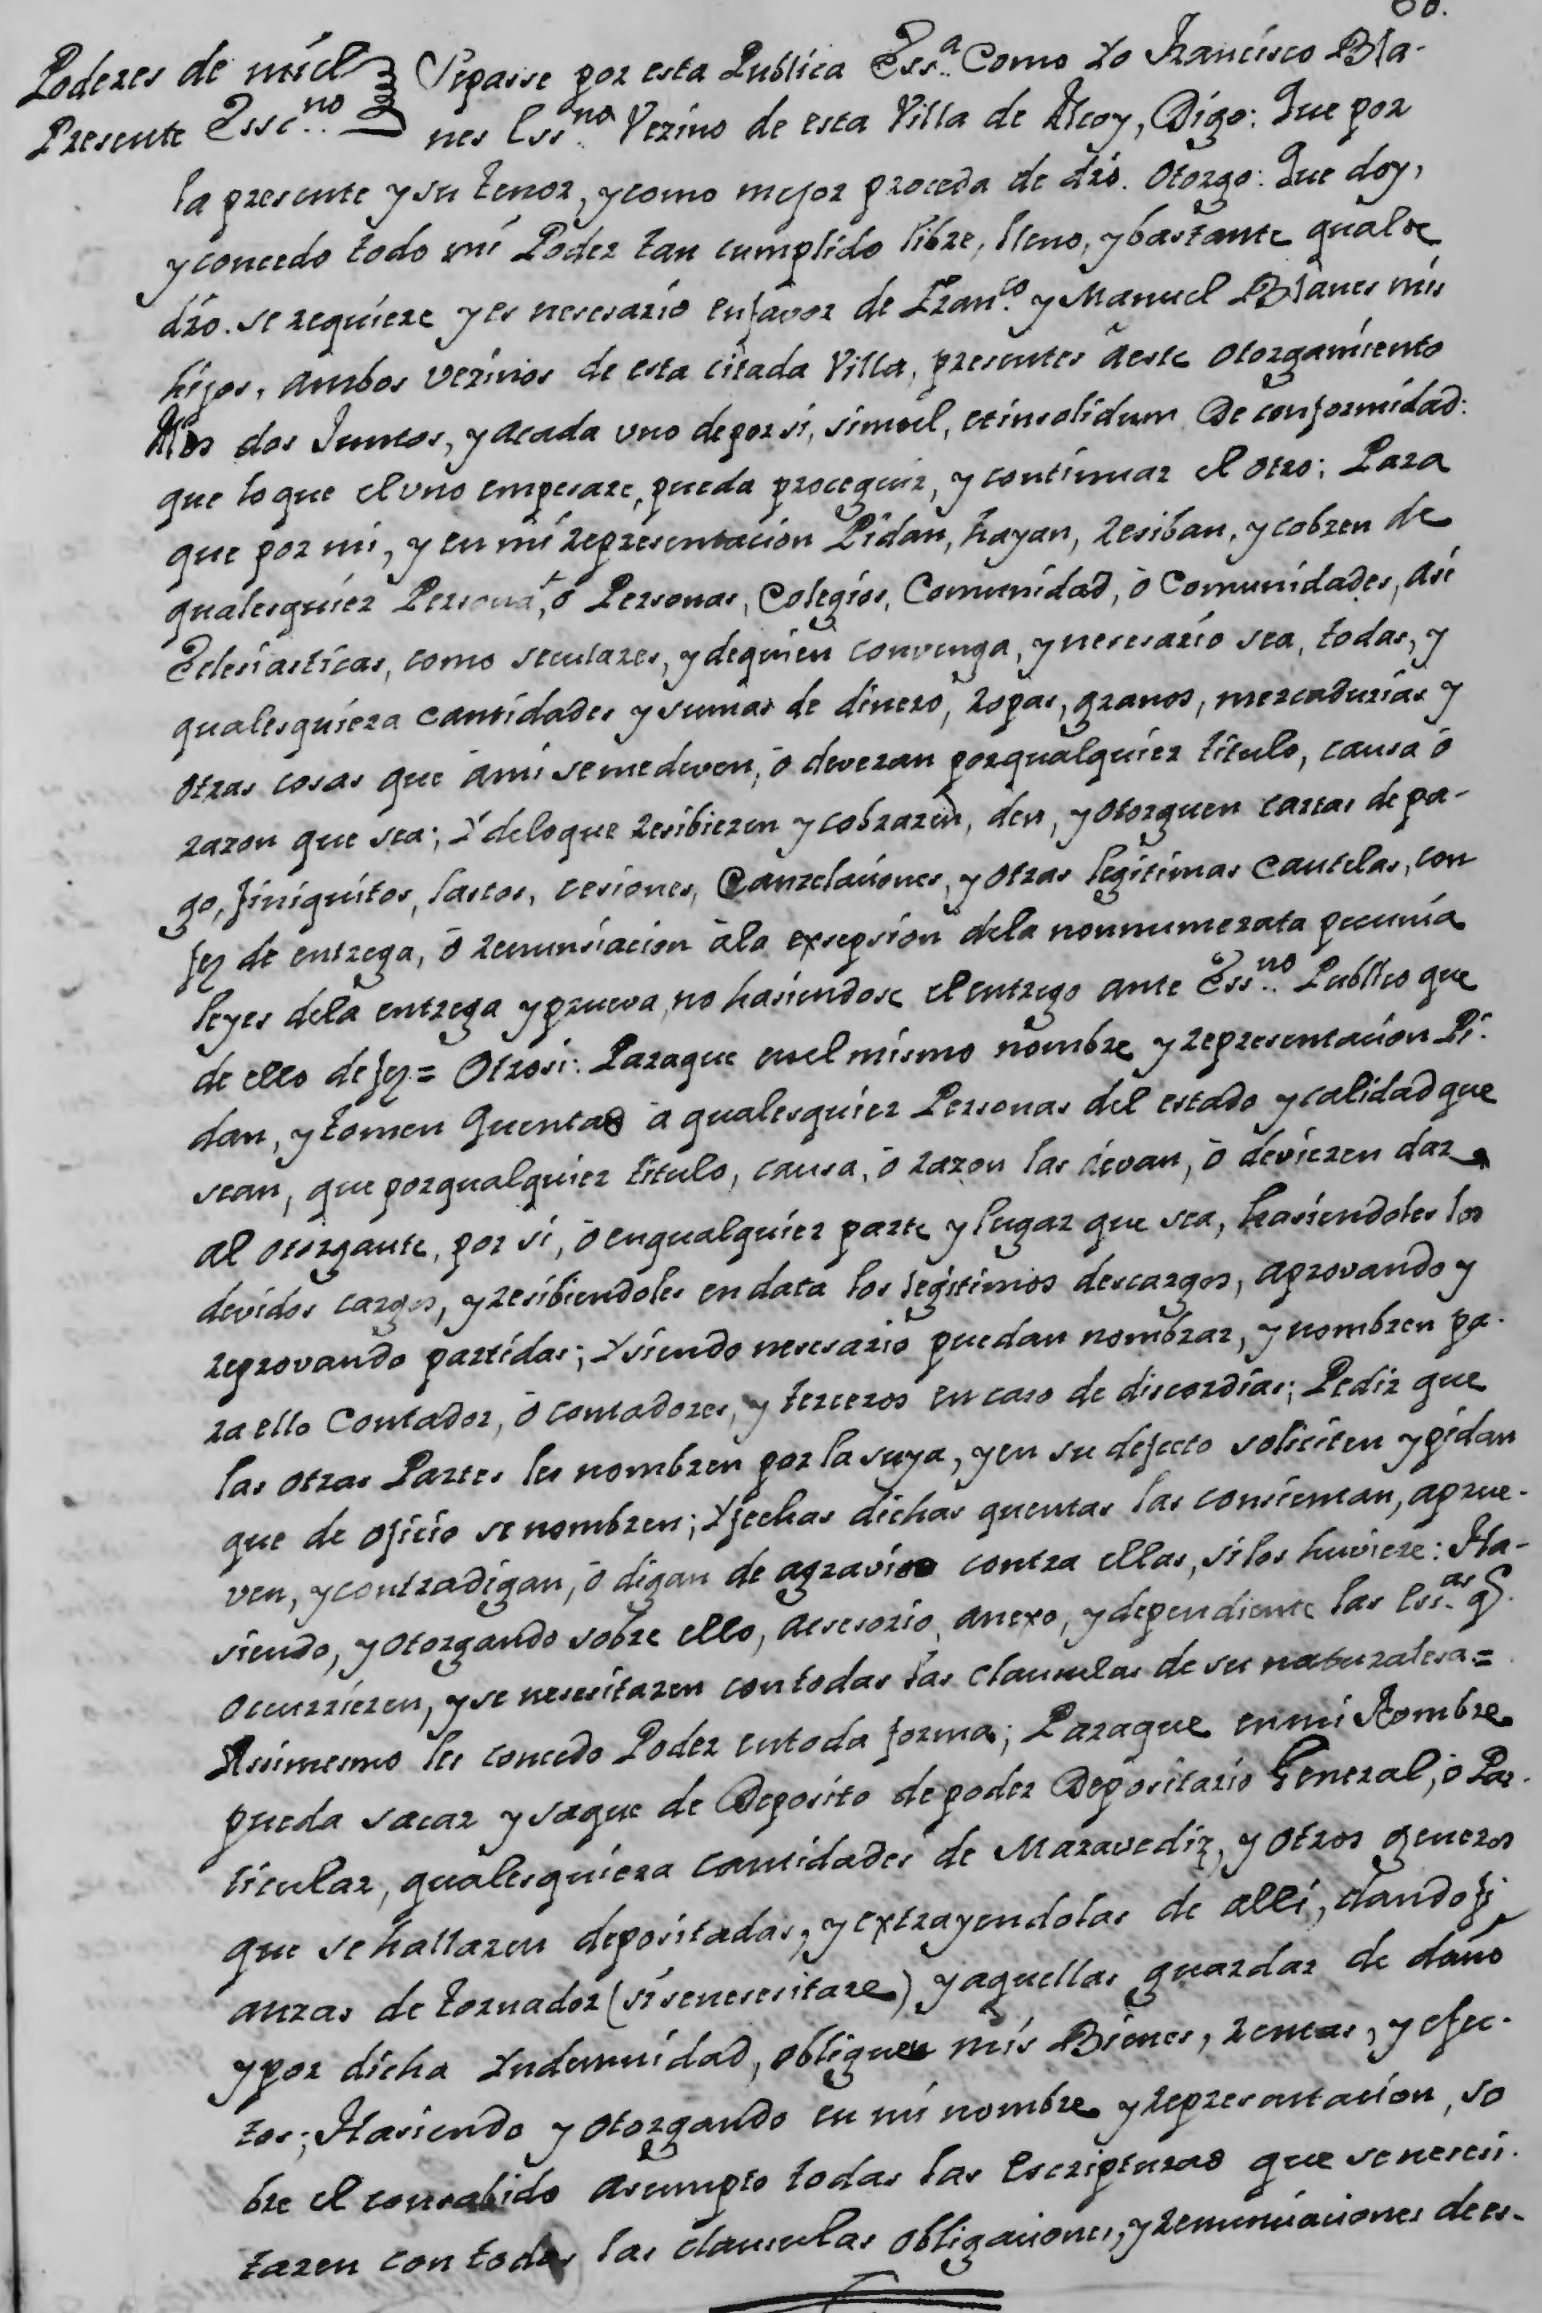 60.
Poderes de mi el
Presente Essc.no
Sepasse por esta Publica Ess.a Como Yo Francisco Bla-
nes Ess.no Vezino de esta Villa de Alcoy, Digo: Que por
la presente y su tenor, y como mejor proceda de dro. Otorgo: Que doy,
y concedo todo mi Poder tan cumplido libre, lleno, y bastante qual de
dro. se requiere y es nesesario en favor de Fran.co y Manuel Blanes mis
hijos, ambos vezinos de esta citada Villa, presentes à este otorgamiento
A los dos Juntos, y a cada uno de por si, simul, et insolidum De conformidad:
que lo que el uno empesare, pueda proceguir, y continuar el otro; Para
que por mi, y en mi representacion Pidan, hayan, resiban, y cobren de
qualesquier Persona, ò Personas, Colegios, Comunidad, ò Comunidades, asi
Eclesiasticas, como seculares, y de quien convenga, y nesesario sea, todas, y
qualesquiera cantidades y sumas de dinero, ropas, granos, mercadurias y
otras cosas que à mi se me deven, ò deveran por qualquier titulo, causa ò
razon que sea; Y de lo que resibieren y cobraren, den, y otorguen cartas de pa-
go, finiquitos, lastos, cesiones, Canzelaciones, y otras legitimas cautelas, con
fez de entrega, ò renunsiacion à la exsepsion de la nonnumerata pecunia
leyes de la entrega y prueva, no hasiendose el entrego ante Ess.no Publico que
de ello de fez = Otrosi: Para que en el mismo nombre y representacion Pi-
dan, y tomen quentas à qualesquier Personas del estado y calidad que
sean, que por qualquier titulo, causa, ò razon las devan, ò devieren dar
al otorgante, por si, ò en qualquier parte y lugar que sea, hasiendoles los
devidos cargos, y resibiendoles en data los legitimos descargos, aprovando y
reprovando partidas; Y siendo nesesario puedan nombrar, y nombren pa-
ra ello Contador, ò contadores, y terceros en caso de discordias; Pedir que
las otras Partes les nombren por la suya, y en su defecto soliciten y pidan
que de oficio se nombren; Y fechas dichas quentas las consientan, aprue-
ven, y contradigan, ò digan de agravios contra ellas, si los huviere: Ha-
siendo, y otorgando sobre ello, acsesorio, anexo, y dependiente las Ess.as q.
ocurrieren, y se nesesitaren con todas las clausulas de su naturalesa =
Assimesmo les concedo Poder en toda forma; Para que en mi Nombre
pueda sacar y saque de Deposito de poder Depositario General, ò Par-
ticular, qualesquiera cantidades de Maravediz, y otros generos
que se hallaren depositadas, y extrayendolas de alli, dando fi
anzas de tornador (si se nesesitare) y aquellas guardar de daño
y por dicha Yndemnidad, obliguen mis Bienes, rentas, y efec-
tos; Hasiendo y otorgando en mi nombre y representacion, so
bre el consabido asumpto todas las Escripturas que se nesesi-
taren con todas las clausulas obligaciones, y renunciaciones de es-